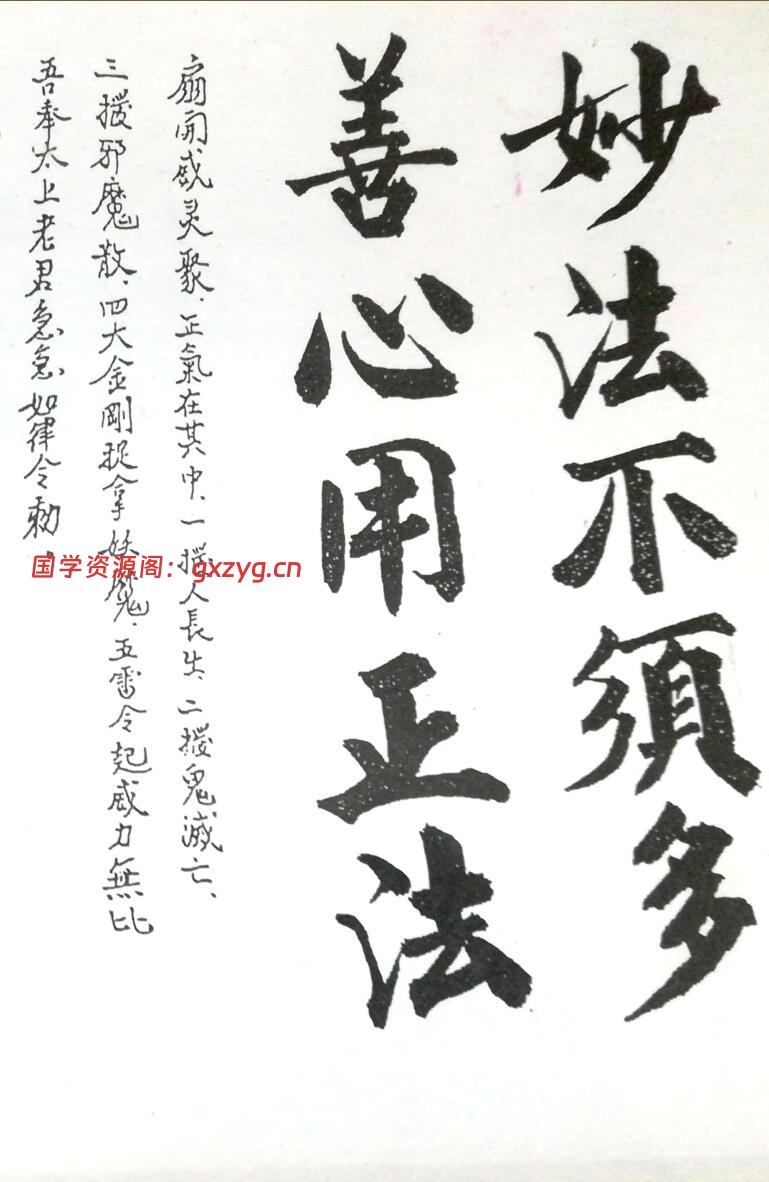 妙法不須多
善心用正法
扇開威灵聚、正氣在其中、一摇人長生、二摇鬼滅亡、
三摇邪魔散、四大金剛捉拿妖魔、五雷令起威力無比
吾奉太上老君急急如律令勅、
国学资源阁：gxzyg.cn